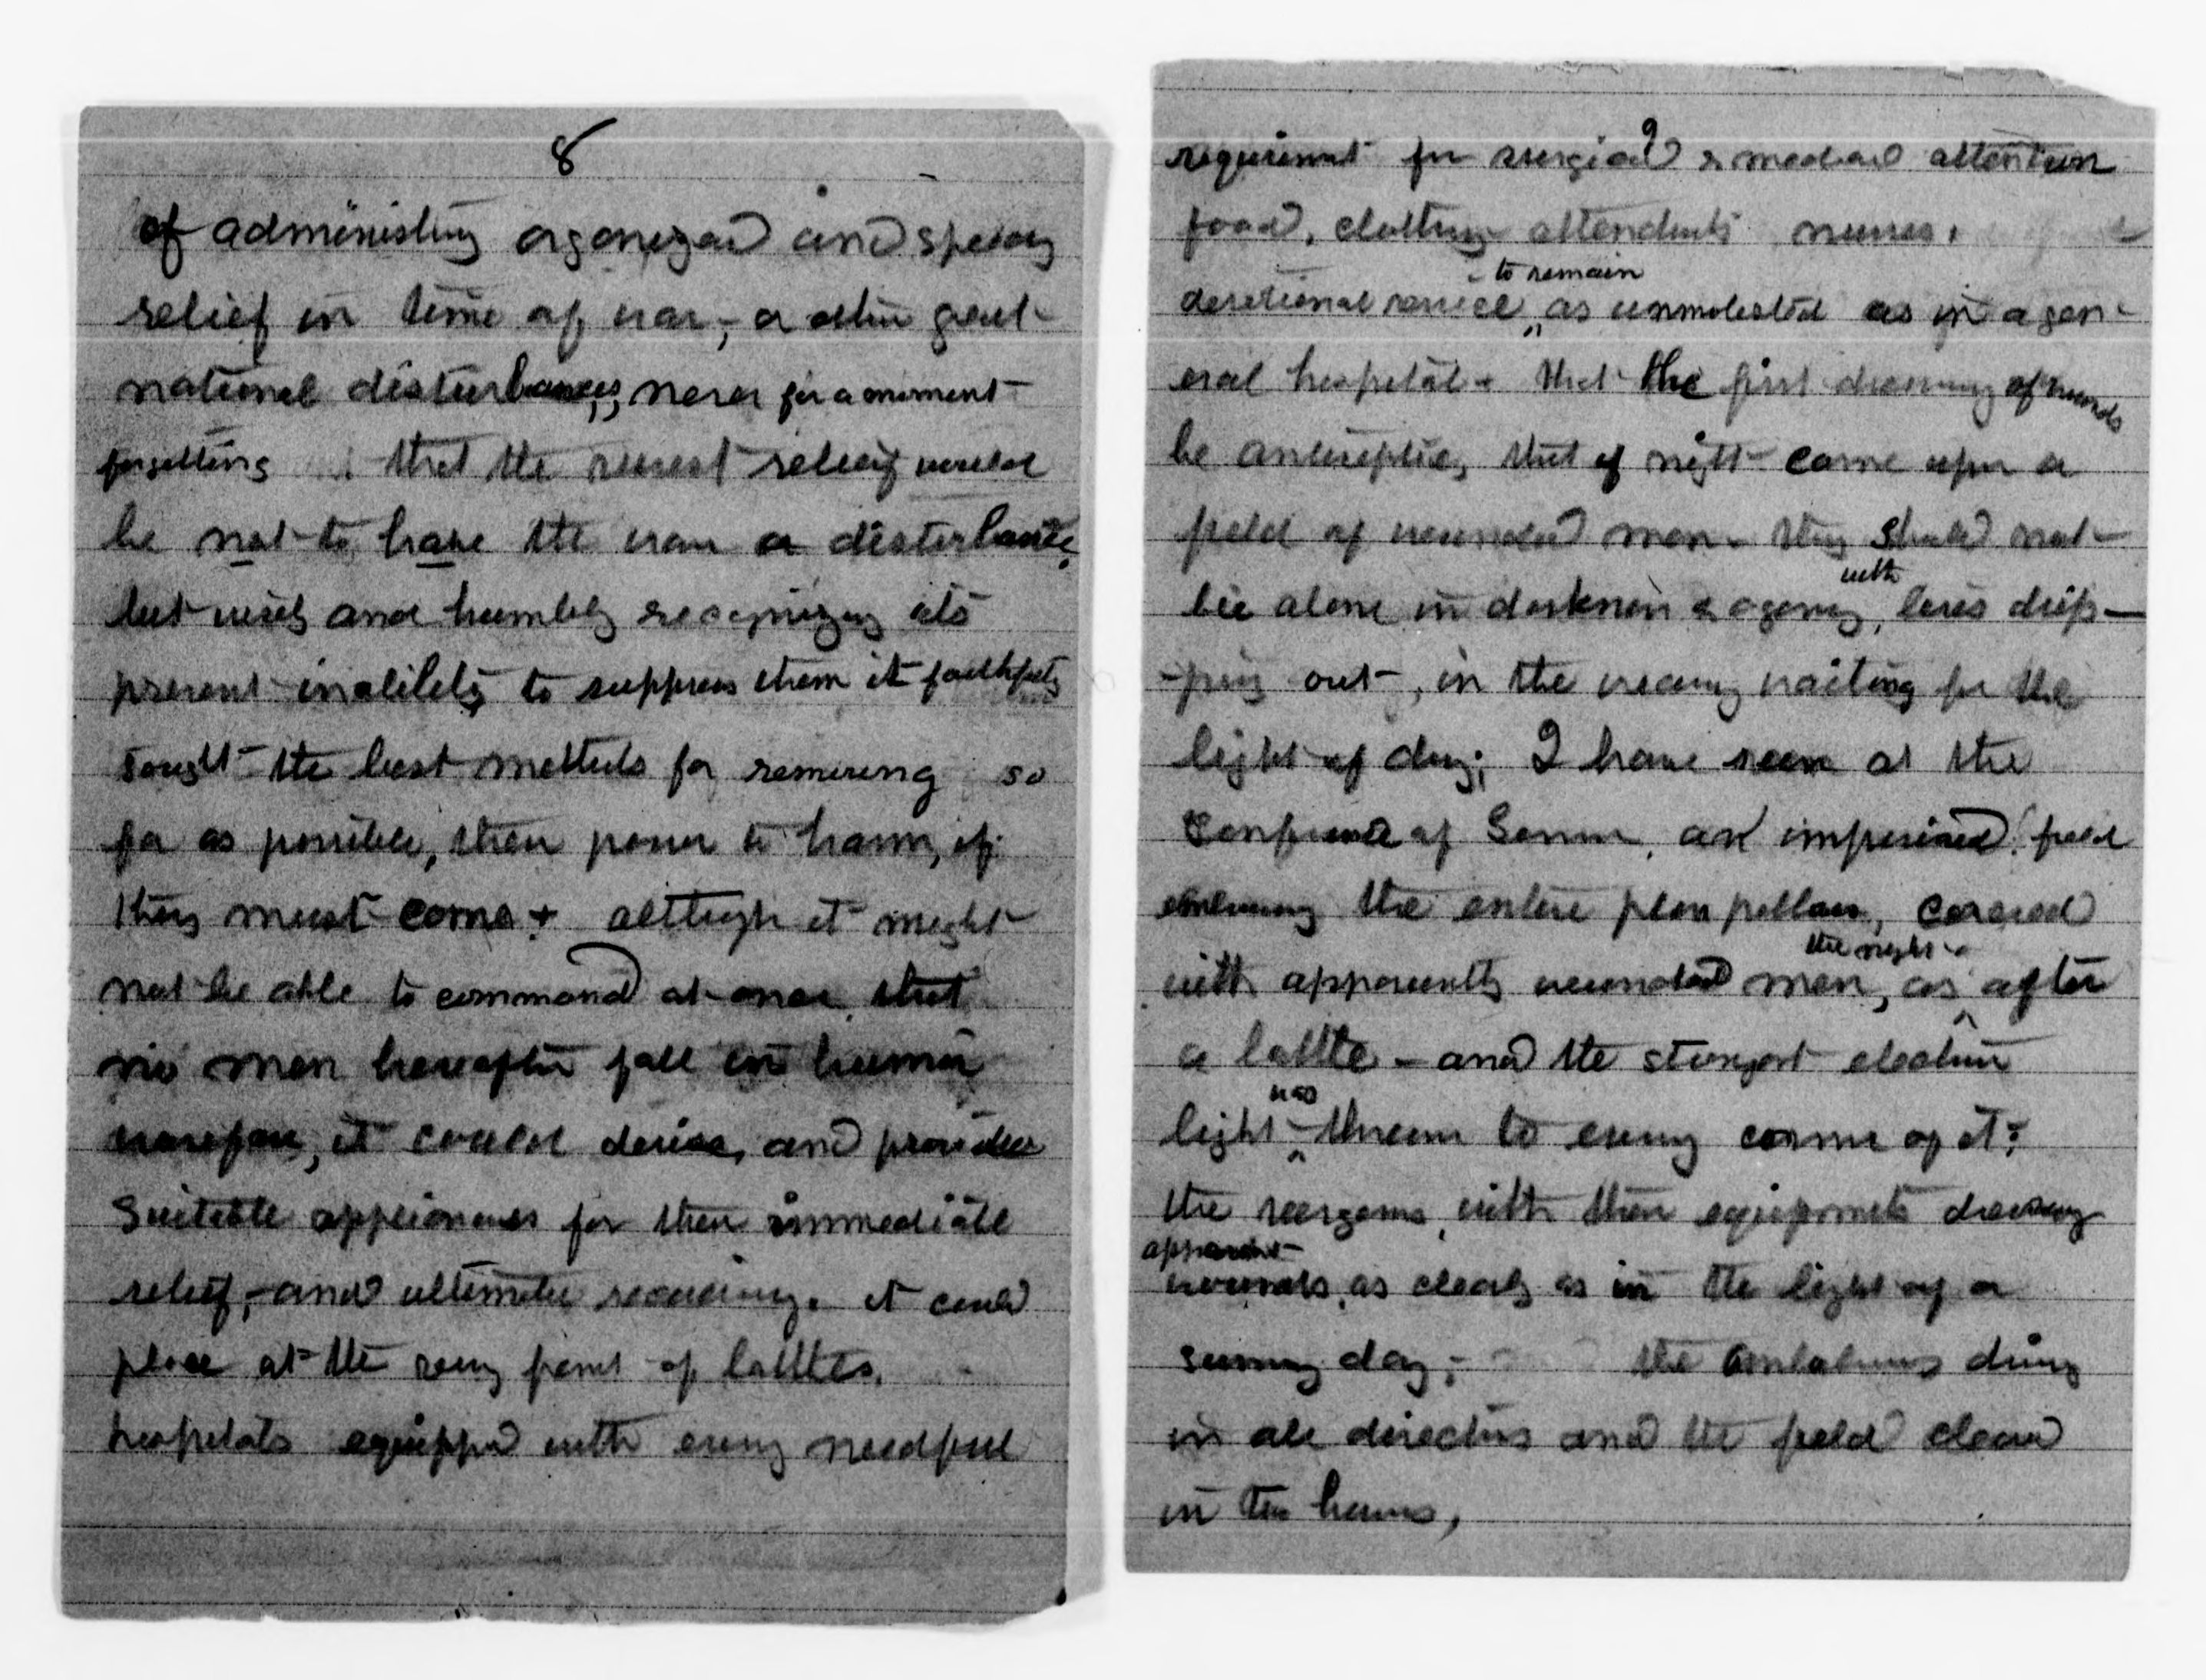 8
of administing organized and speedy
relief in time of war, - or other great
national disturbances, never for a moment
forgetting that the surest relief would
be not to have the war or disturbance,
but wisely and humbly recognizing its
present inability to suppress them it faithfully
sought the best methods for removing so
far as possible, their power to harm, if
they must come + although it might
not be able to command at once that
no man hereafter fall in human
warefare, it could devise, and provide
suitable appliances for their immediate
relief, - and ultimate recovery. it could
place at the very front of battles,
hospitals equipped with every needful
9
requirement for surgical & medical attention
food, clothing attendents nurses,
to remain
service, as unmolested as in a gen-
eral hospital + that the first dressing of wounds
be antiseptic, that if night came upon a
field of wounded men. they should not
with
lie alone in darkness & agony, lives drip-
-ping out, in the weary waiting for the
light of day; I have seen at the
Conference of Geneva, an improvised field
the entire plan, covered
the night
with apparently wounded men, as after
a battle - and the strongest electric
was
light thrown to every corner of it:
the surgeons, with their equipments dressing
apparent
wounds, as clearly as in the light of a
sunny day; - the ambulances driving
in all directions and the field cleared
in two hours,